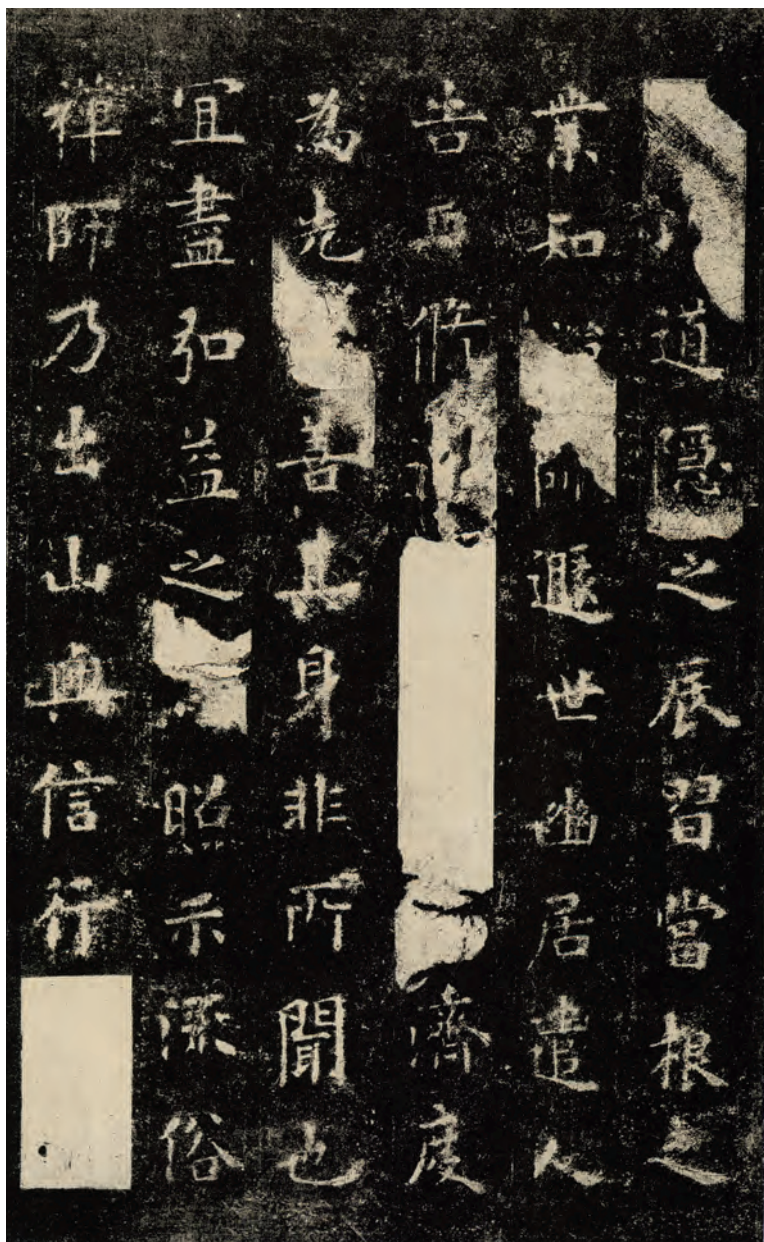 道隱之辰習當根之
業知師遯世幽居遣人
告曰脩濟度
為先善其身非所聞也
宜盡弘益之照示流俗
禪師乃出山與信行